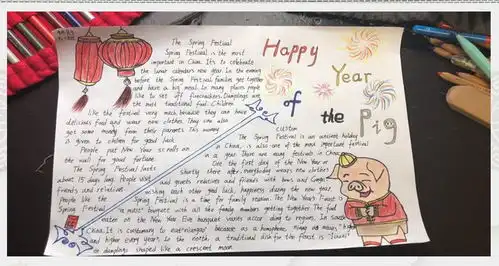 The Spring Festival
Spring Festival is the most
important in China. It's to celebrate
the lunar calendar's new year. In the evening
before the Spring Festival, families get together
and have a big meal. In many places people
like to set off firecrackers. Dumplings are
the most traditional food. Children
like the festival very much, because they can have
delicious food and wear new clothes. They can also
get some money from their parents. This money
is given to children for good luck.
People put New Year scrolls on
the wall for good fortune.
The Spring Festival lasts
about 15 days long. People visit
friends and relatives
Happy
Year
of
the
Pig
custom
The Spring Festival is an ancient holiday
in China, is also one of the most important festival
in a year. There are many festivals in China.
the first day of the New Year or
shortly there after, everybody wears new clothes
and greets relatives and friends with bows and
wishing each other good luck, happiness during the new year.
people like the Spring Festival is a time for family reunion. The New Year's Feast is
Spring Festival "a must" banquet with all the family members getting together. The food
eaten on the New Year Eve banquet varies according to regions. In south
China. It is customary to eat "niangao" because as a homophone, means "higher
and higher every year. In the north, a traditional dish for the feast is "Jiaozi"
or dumplings shaped like a crescent moon.